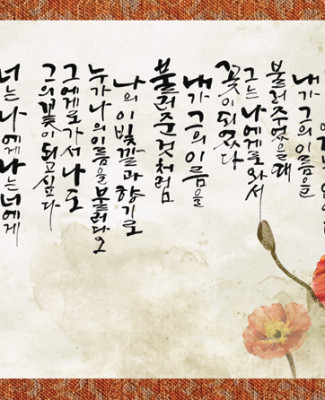 내가 그의 이름을
불러 주었을 때
그는 나에게로 와서
꽃이 되었다
내가 그의 이름을
불러준 것처럼
나의 이 빛깔과 향기로
누가 나의 이름을 불러다오
그에게로 가서 나도
그의 꽃이 되고 싶다
너는 나에게 나는 너에게